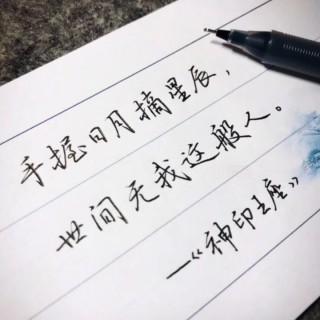 手握日月摘星辰，
世间无我这般人。
—《神印王座》